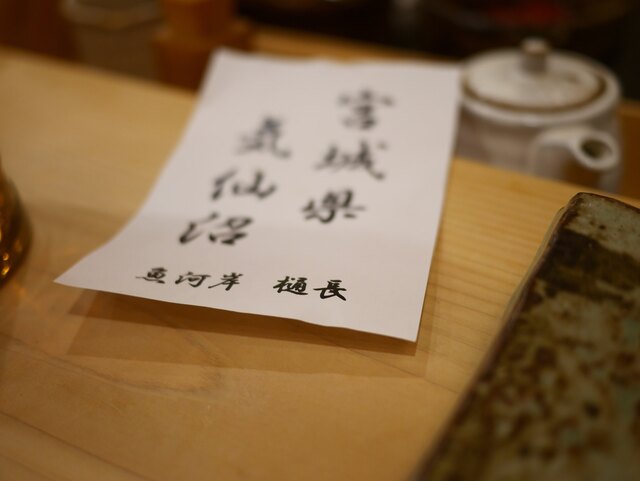 宮城県
気仙沼
魚河岸 樋長